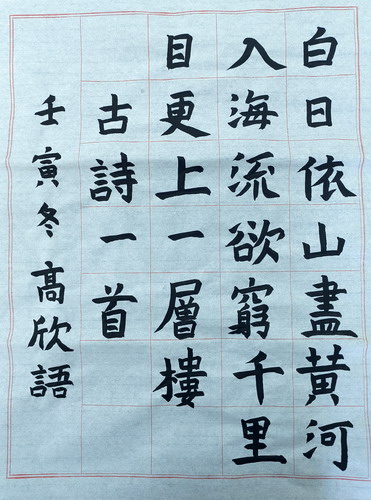 白日依山盡黄河
入海流欲窮千里
目更上一層樓
古詩一首
壬寅冬高欣語